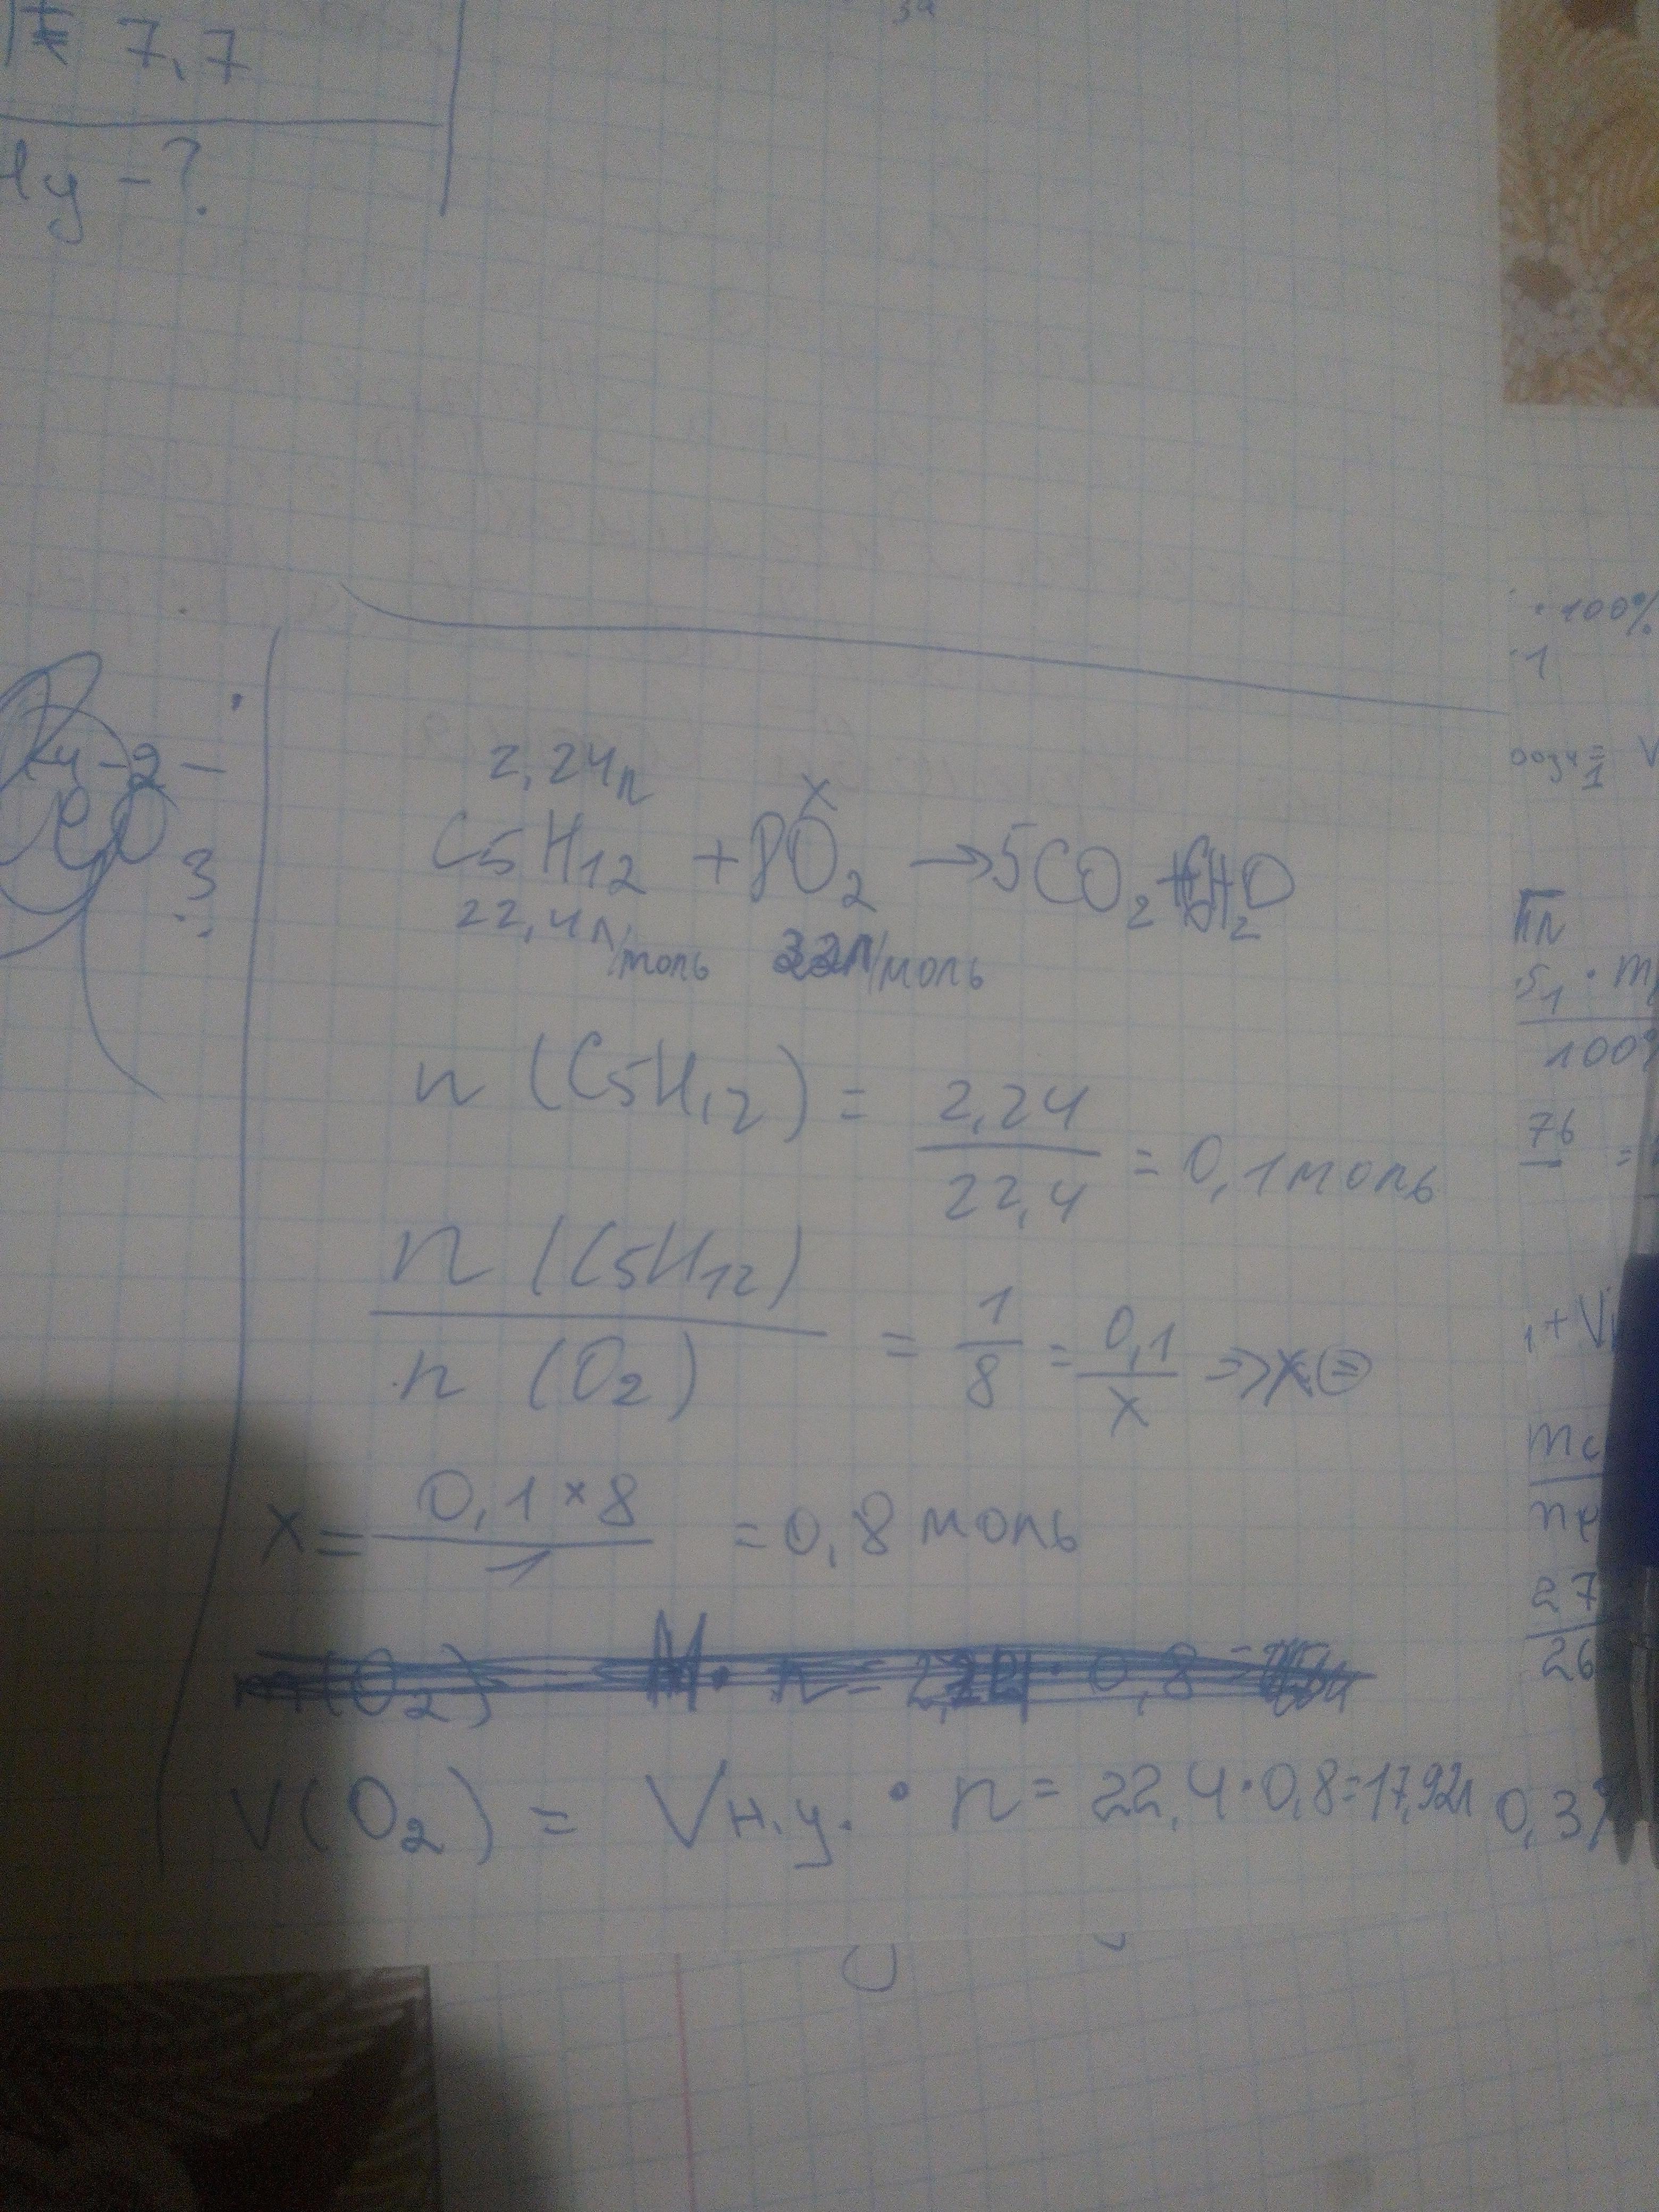 = 7,7
Hy - ?
2,24л
x
C5H12 + 8O2 → 5CO2 + 6H2O
22,4л/моль 32л/моль
n (C5H12) = 2,24 / 22,4 = 0,1 моль
n (C5H12) / n (O2) = 1/8 = 0,1/x => x =
x = 0,1 × 8 / 1 = 0,8 моль
V(O2) = Vн.у. · n = 22,4 · 0,8 = 17,92л
· 100%
1
S1 · m
100%
76 =
1 + V
27
26
0,3